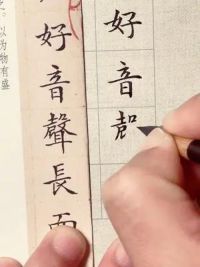 好音聲長而
好音
以為物有盛